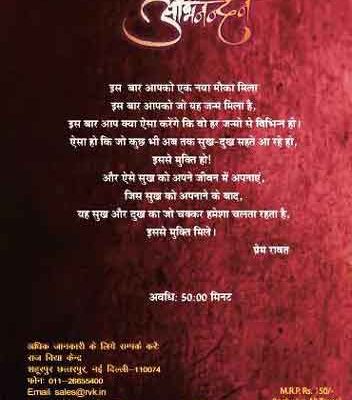 अभिनन्दन
इस बार आपको एक नया मौका मिला
इस बार आपको जो यह जन्म मिला है,
इस बार आप क्या ऐसा करेंगे कि वो हर जन्मो से विभिन्न हो।
ऐसा हो कि जो कुछ भी अब तक सुख-दुख सहते आ रहे हो,
इससे मुक्ति हो!
और ऐसे सुख को अपने जीवन में अपनाएं,
जिस सुख को अपनाने के बाद,
यह सुख और दुख का जो चक्कर हमेशा चलता रहता है,
इससे मुक्ति मिले।
प्रेम रावत
अवधि: 50:00 मिनट
अधिक जानकारी के लिये सम्पर्क करें:
राज विद्या केन्द्र
शहूरपुर छत्तरपुर, नई दिल्ली-110074
फोन: 011-26655400
Email sales@rvk.in
M.R.P. Rs. 150/-